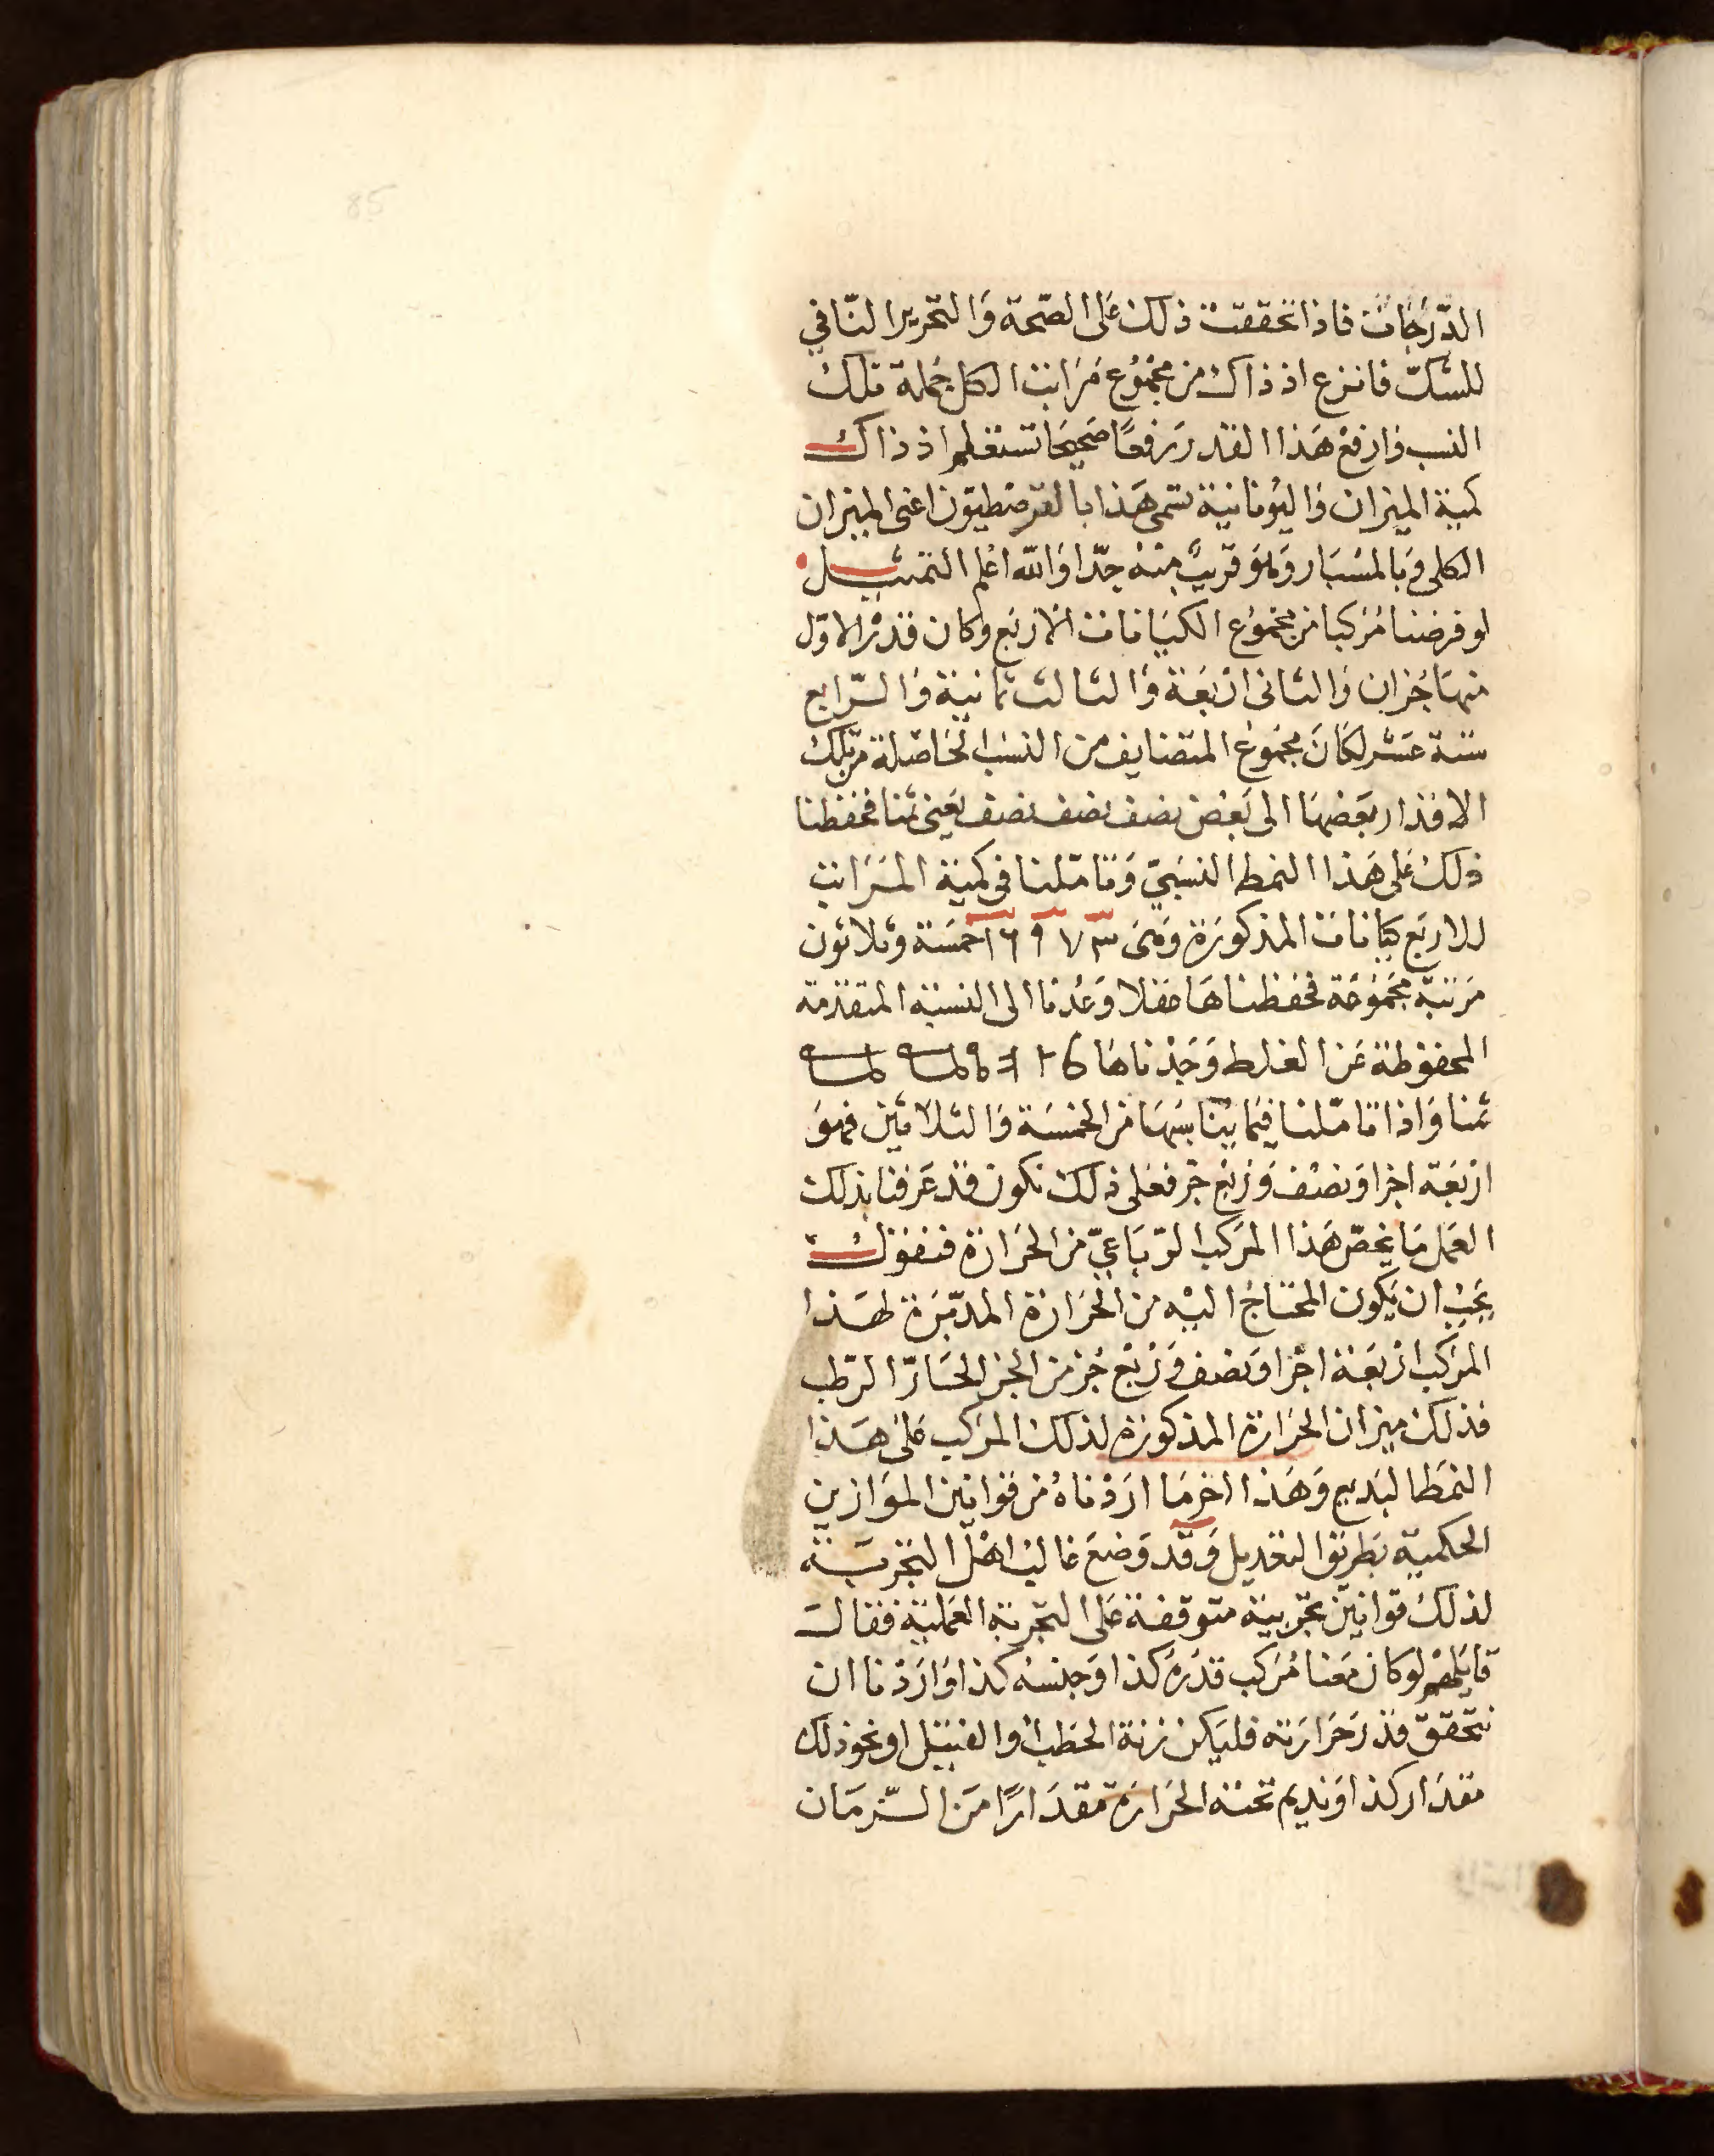 85
الدّرَجات فاذا تحققت ذلك على الصّحة وَالتحرير النّافي
للشكّ فانزع اذ ذاك من مجمُوع مَرَاتب الكل جُملة تلك
النسب وَارفعْ هَذا القدر رَفعًا صَحيحًا تستعلم اذ ذاك
كمية الميزان وَاليُونانية تسمى هَذا بالقرصْطيوْن اعنى الميزان
الكلى وَبالمسْبَار وَهوَ قريبٌ منْهُ جدّا وَالله اعْلم التمثيل
لو فرضنا مُركبا من مجمُوع الكيَانات الأربَع وكان قدْرُ الاوّل
منهَا جُزان وَالثانى ارْبَعَة وَالثالث ثمانية وَالرّابع
ستة عشر لكانَ مجمُوع المتضايف من النسَب الحَاصلة من تلك
الاقدار بَعضهَا الى بَعْض نصف نصف نصف يَعْنى ثمنا فحفظنا
ذلكَ عَلى هَذا النمط النسَبيّ وَتامّلنا فى كمية المَرَاتب
للاربَع كيانات المذكورَة وَهىَ ٣ ٧ ٩ ١٦ خمسَة وَثلاثون
مَرتبَة مجَمُوعَة فحفظناهَا حفلا وَعُدنا الى النسْبَة المتقدّمة
المحفوْظة عَن الغلط وَجَدْناهَا
ثمنا وَاذا تامّلنا فيمَا يُناسِبهَا من الخمسَة وَالثلاثين فهوَ
ارْبَعَة اجزا وَنصْف وَرُبع جزْ فعلى ذلك نكون قد عَرفنا بذلك
العَمل مَا يخصّ هَذا المرَكب الرّبَاعيّ من الحَرَارَة فنقوْل
يَجبْ ان يَكون المحتَاجُ اليْه من الحَرَارَة المدبّرَة لهَذا
المرَكب ارْبَعَة اجْزا وَنصف وَرُبْع جُز من الجز الحَارّ الرّطب
فذلك ميزان الحَرَارَة المذكورَة لذلك المرَكب عَلى هَذا
النمَط البَديع وَهَذا اخر مَا ارَدْناهُ من قوانين الموَازين
الحكمية بَطريْق التعْديل وَقدْ وَضعَ غالبْ اهْل التجْربَة
لذلكَ قوانين تجْربية متوقفة عَلى التجْربَة العَمليّة فقال
قايلهمْ لو كان مَعنا مُركب قدْرَهُ كذا وَجنسه كذا وَارَدْنا ان
نتحَقق قدْرَ حَرَارَته فليَكن زنة الحَطب اوْ الفتيل او نحو ذلك
مقدَار كذا وَنديم تحتهُ الحَرَارَة مقدَارًا مَن الزّمَان